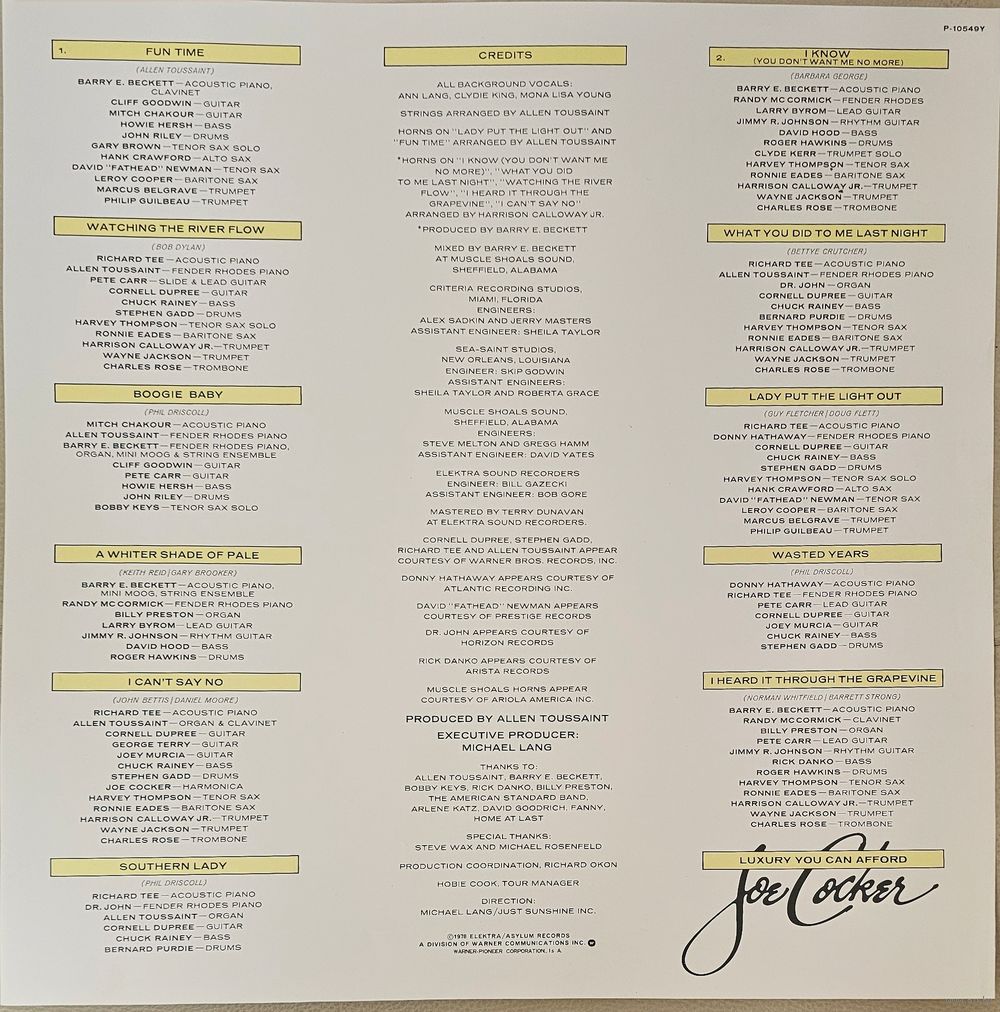 P-10549Y
1. FUN TIME
(ALLEN TOUSSAINT)
BARRY E. BECKETT—ACOUSTIC PIANO,
CLAVINET
CLIFF GOODWIN—GUITAR
MITCH CHAKOUR—GUITAR
HOWIE HERSH—BASS
JOHN RILEY—DRUMS
GARY BROWN—TENOR SAX SOLO
HANK CRAWFORD—ALTO SAX
DAVID "FATHEAD" NEWMAN—TENOR SAX
LEROY COOPER—BARITONE SAX
MARCUS BELGRAVE—TRUMPET
PHILIP GUILBEAU—TRUMPET
WATCHING THE RIVER FLOW
(BOB DYLAN)
RICHARD TEE—ACOUSTIC PIANO
ALLEN TOUSSAINT—FENDER RHODES PIANO
PETE CARR—SLIDE & LEAD GUITAR
CORNELL DUPREE—GUITAR
CHUCK RAINEY—BASS
STEPHEN GADD—DRUMS
HARVEY THOMPSON—TENOR SAX SOLO
RONNIE EADES—BARITONE SAX
HARRISON CALLOWAY JR.—TRUMPET
WAYNE JACKSON—TRUMPET
CHARLES ROSE—TROMBONE
BOOGIE BABY
(PHIL DRISCOLL)
MITCH CHAKOUR—ACOUSTIC PIANO
ALLEN TOUSSAINT—FENDER RHODES PIANO
BARRY E. BECKETT—FENDER RHODES PIANO,
ORGAN, MINI MOOG & STRING ENSEMBLE
CLIFF GOODWIN—GUITAR
PETE CARR—GUITAR
HOWIE HERSH—BASS
JOHN RILEY—DRUMS
BOBBY KEYS—TENOR SAX SOLO
A WHITER SHADE OF PALE
(KEITH REID/GARY BROOKER)
BARRY E. BECKETT—ACOUSTIC PIANO,
MINI MOOG, STRING ENSEMBLE
RANDY MC CORMICK—FENDER RHODES PIANO
BILLY PRESTON—ORGAN
LARRY BYROM—LEAD GUITAR
JIMMY R. JOHNSON—RHYTHM GUITAR
DAVID HOOD—BASS
ROGER HAWKINS—DRUMS
I CAN'T SAY NO
(JOHN BETTIS/DANIEL MOORE)
RICHARD TEE—ACOUSTIC PIANO
ALLEN TOUSSAINT—ORGAN & CLAVINET
CORNELL DUPREE—GUITAR
GEORGE TERRY—GUITAR
JOEY MURCIA—GUITAR
CHUCK RAINEY—BASS
STEPHEN GADD—DRUMS
JOE COCKER—HARMONICA
HARVEY THOMPSON—TENOR SAX
RONNIE EADES—BARITONE SAX
HARRISON CALLOWAY JR.—TRUMPET
WAYNE JACKSON—TRUMPET
CHARLES ROSE—TROMBONE
SOUTHERN LADY
(PHIL DRISCOLL)
RICHARD TEE—ACOUSTIC PIANO
DR. JOHN—FENDER RHODES PIANO
ALLEN TOUSSAINT—ORGAN
CORNELL DUPREE—GUITAR
CHUCK RAINEY—BASS
BERNARD PURDIE—DRUMS
CREDITS
ALL BACKGROUND VOCALS:
ANN LANG, CLYDIE KING, MONA LISA YOUNG
STRINGS ARRANGED BY ALLEN TOUSSAINT
HORNS ON "LADY PUT THE LIGHT OUT" AND
"FUN TIME" ARRANGED BY ALLEN TOUSSAINT
*HORNS ON "I KNOW (YOU DON'T WANT ME
NO MORE)", "WHAT YOU DID
TO ME LAST NIGHT", "WATCHING THE RIVER
FLOW", "I HEARD IT THROUGH THE
GRAPEVINE", "I CAN'T SAY NO"
ARRANGED BY HARRISON CALLOWAY JR.
*PRODUCED BY BARRY E. BECKETT
MIXED BY BARRY E. BECKETT
AT MUSCLE SHOALS SOUND,
SHEFFIELD, ALABAMA
CRITERIA RECORDING STUDIOS,
MIAMI, FLORIDA
ENGINEERS:
ALEX SADKIN AND JERRY MASTERS
ASSISTANT ENGINEER: SHEILA TAYLOR
SEA-SAINT STUDIOS,
NEW ORLEANS, LOUISIANA
ENGINEER: SKIP GODWIN
ASSISTANT ENGINEERS:
SHEILA TAYLOR AND ROBERTA GRACE
MUSCLE SHOALS SOUND,
SHEFFIELD, ALABAMA
ENGINEERS:
STEVE MELTON AND GREGG HAMM
ASSISTANT ENGINEER: DAVID YATES
ELEKTRA SOUND RECORDERS
ENGINEER: BILL GAZECKI
ASSISTANT ENGINEER: BOB GORE
MASTERED BY TERRY DUNAVAN
AT ELEKTRA SOUND RECORDERS.
CORNELL DUPREE, STEPHEN GADD,
RICHARD TEE AND ALLEN TOUSSAINT APPEAR
COURTESY OF WARNER BROS. RECORDS, INC.
DONNY HATHAWAY APPEARS COURTESY OF
ATLANTIC RECORDING INC.
DAVID "FATHEAD" NEWMAN APPEARS
COURTESY OF PRESTIGE RECORDS
DR. JOHN APPEARS COURTESY OF
HORIZON RECORDS
RICK DANKO APPEARS COURTESY OF
ARISTA RECORDS
MUSCLE SHOALS HORNS APPEAR
COURTESY OF ARIOLA AMERICA INC.
PRODUCED BY ALLEN TOUSSAINT
EXECUTIVE PRODUCER:
MICHAEL LANG
THANKS TO:
ALLEN TOUSSAINT, BARRY E. BECKETT,
BOBBY KEYS, RICK DANKO, BILLY PRESTON,
THE AMERICAN STANDARD BAND,
ARLENE KATZ, DAVID GOODRICH, FANNY,
HOME AT LAST
SPECIAL THANKS:
STEVE WAX AND MICHAEL ROSENFELD
PRODUCTION COORDINATION, RICHARD OKON
HOBIE COOK, TOUR MANAGER
DIRECTION:
MICHAEL LANG/JUST SUNSHINE INC.
©1978 ELEKTRA/ASYLUM RECORDS
A DIVISION OF WARNER COMMUNICATIONS INC.
WARNER-PIONEER CORPORATION,
2. I KNOW
(YOU DON'T WANT ME NO MORE)
(BARBARA GEORGE)
BARRY E. BECKETT—ACOUSTIC PIANO
RANDY MC CORMICK—FENDER RHODES
LARRY BYROM—LEAD GUITAR
JIMMY R. JOHNSON—RHYTHM GUITAR
DAVID HOOD—BASS
ROGER HAWKINS—DRUMS
CLYDE KERR—TRUMPET SOLO
HARVEY THOMPSON—TENOR SAX
RONNIE EADES—BARITONE SAX
HARRISON CALLOWAY JR.—TRUMPET
WAYNE JACKSON—TRUMPET
CHARLES ROSE—TROMBONE
WHAT YOU DID TO ME LAST NIGHT
(BETTYE CRUTCHER)
RICHARD TEE—ACOUSTIC PIANO
ALLEN TOUSSAINT—FENDER RHODES PIANO
DR. JOHN—ORGAN
CORNELL DUPREE—GUITAR
CHUCK RAINEY—BASS
BERNARD PURDIE—DRUMS
HARVEY THOMPSON—TENOR SAX
RONNIE EADES—BARITONE SAX
HARRISON CALLOWAY JR.—TRUMPET
WAYNE JACKSON—TRUMPET
CHARLES ROSE—TROMBONE
LADY PUT THE LIGHT OUT
(GUY FLETCHER/DOUG FLETT)
RICHARD TEE—ACOUSTIC PIANO
DONNY HATHAWAY—FENDER RHODES PIANO
CORNELL DUPREE—GUITAR
CHUCK RAINEY—BASS
STEPHEN GADD—DRUMS
HARVEY THOMPSON—TENOR SAX SOLO
HANK CRAWFORD—ALTO SAX
DAVID "FATHEAD" NEWMAN—TENOR SAX
LEROY COOPER—BARITONE SAX
MARCUS BELGRAVE—TRUMPET
PHILIP GUILBEAU—TRUMPET
WASTED YEARS
(PHIL DRISCOLL)
DONNY HATHAWAY—ACOUSTIC PIANO
RICHARD TEE—FENDER RHODES PIANO
PETE CARR—LEAD GUITAR
CORNELL DUPREE—GUITAR
JOEY MURCIA—GUITAR
CHUCK RAINEY—BASS
STEPHEN GADD—DRUMS
I HEARD IT THROUGH THE GRAPEVINE
(NORMAN WHITFIELD/BARRETT STRONG)
BARRY E. BECKETT—ACOUSTIC PIANO
RANDY MC CORMICK—CLAVINET
BILLY PRESTON—ORGAN
PETE CARR—LEAD GUITAR
JIMMY R. JOHNSON—RHYTHM GUITAR
RICK DANKO—BASS
ROGER HAWKINS—DRUMS
HARVEY THOMPSON—TENOR SAX
RONNIE EADES—BARITONE SAX
HARRISON CALLOWAY JR.—TRUMPET
WAYNE JACKSON—TRUMPET
CHARLES ROSE—TROMBONE
LUXURY YOU CAN AFFORD
Joe Cocker